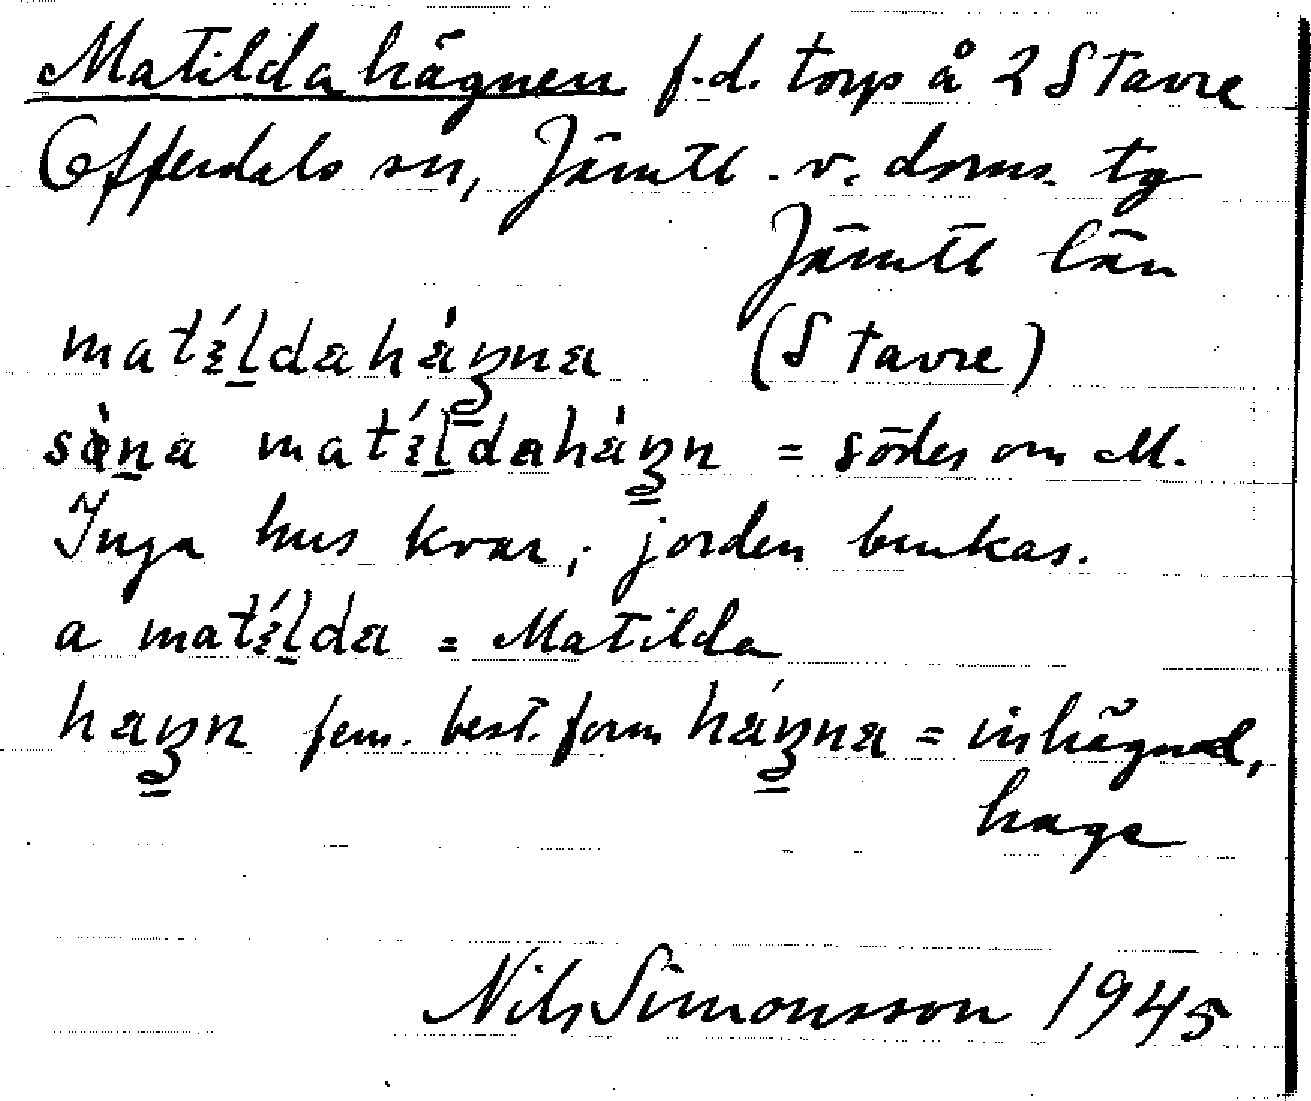 Matildahägnen f.d. torp å 2 Stavre
Offerdals sn, Jämtl. v. doms. tg
Jämtl län
matíldahàgna (Stavre)
sö̀na matíldahàgn = söder om M.
Inga hus kvar, jorden brukas.
a matílda = Matilda
hagn fem. best. form hágna = inhägnad,
hage
Nils Simonsson 1945